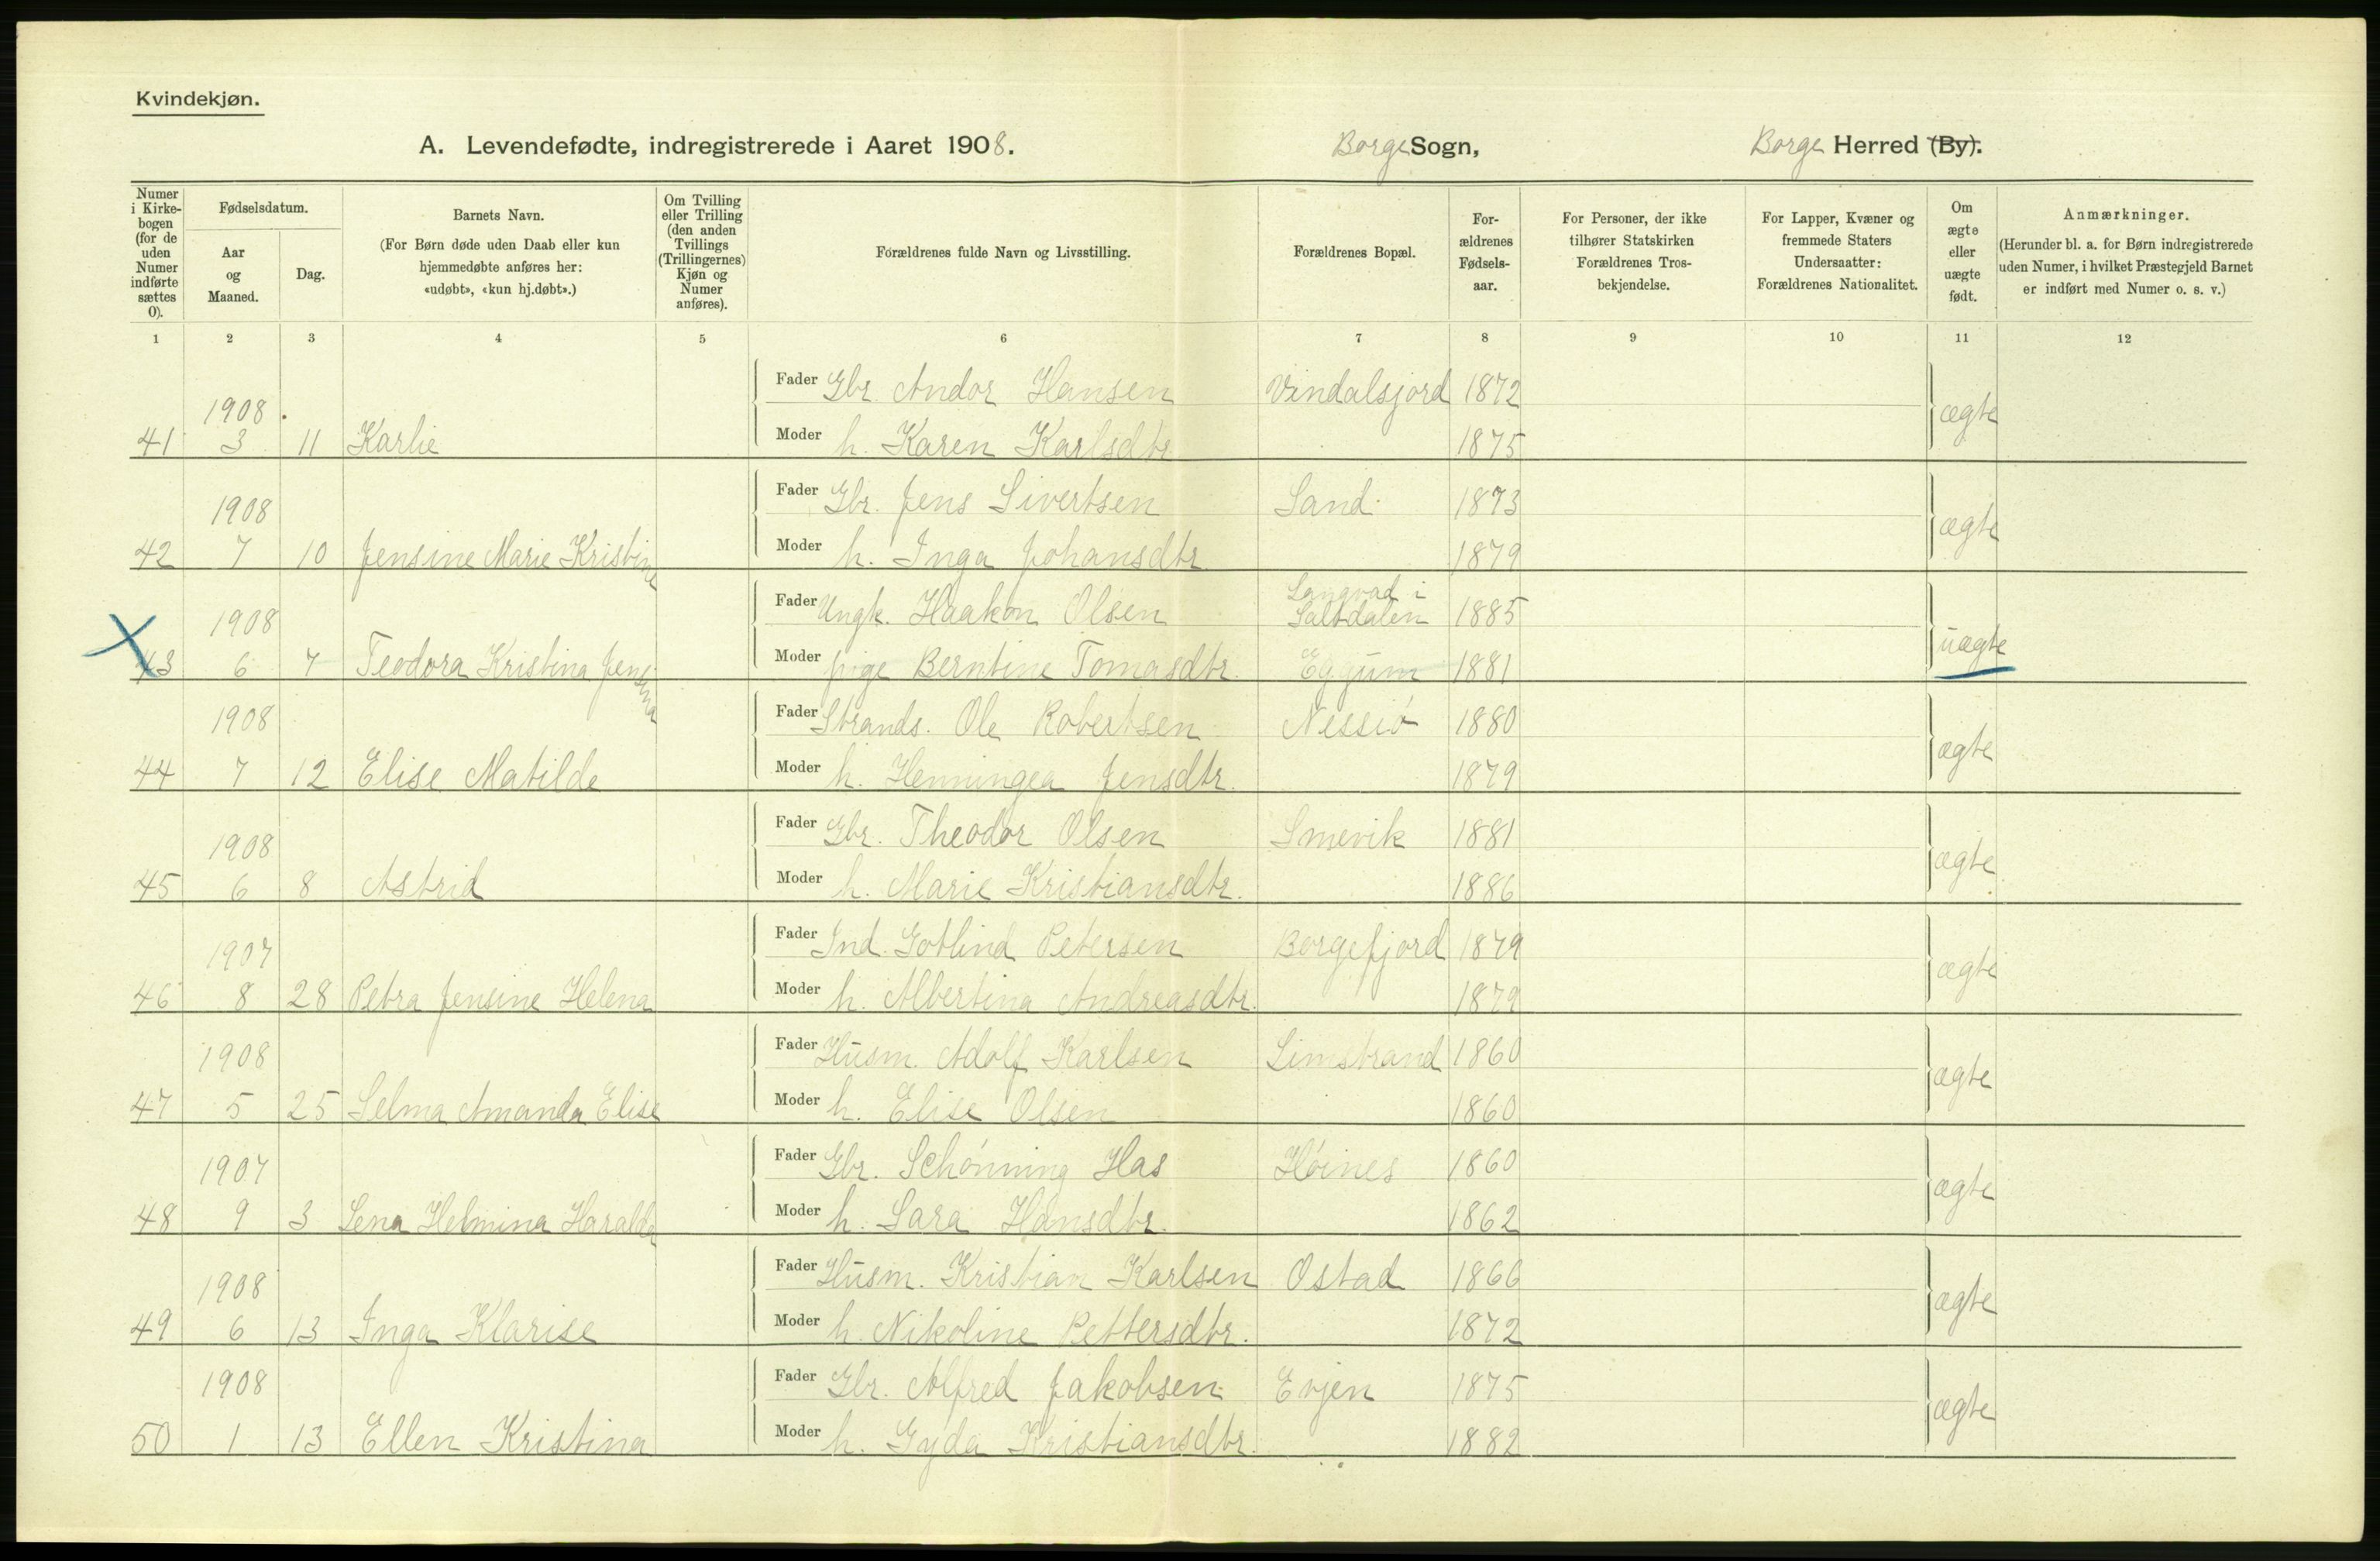 Kvindekjøn.
A. Levendefødte, indregistrerede i Aaret 1908. Borge Sogn, Borge Herred (By).
Numer i Kirkebogen (for de uden Numer indførte sættes 0).
Fødselsdatum.
Aar og Maaned.
Dag.
Barnets Navn.
(For Børn døde uden Daab eller kun hjemmedøbte anføres her: «udøbt», «kun hj.døbt».)
Om Tvilling eller Trilling (den anden Tvillings (Trillingernes) Kjøn og Numer anføres).
Forældrenes fulde Navn og Livsstilling.
Forældrenes Bopæl.
Forældrenes Fødselsaar.
For Personer, der ikke tilhører Statskirken Forældrenes Trosbekjendelse.
For Lapper, Kvæner og fremmede Staters Undersaatter: Forældrenes Nationalitet.
Om ægte eller uægte født.
Anmærkninger.
(Herunder bl. a. for Børn indregistrerede uden Numer, i hvilket Præstegjeld Barnet er indført med Numer o. s. v.)
1 2 3 4 5 6 7 8 9 10 11 12
1908 Fader Gbr. Andor Hansen Vindalsjord 1872 ægte
41 3 11 Karlie Moder h. Karen Karlsdtr 1875
1908 Fader Gbr. Jens Sivertsen Sand 1873 ægte
42 7 10 Jensine Marie Kristine Moder h. Inga Johansdtr 1879
1908 Fader Ungk. Haakon Olsen Langvad i Saltdalen 1885 uægte
43 6 7 Teodora Kristina Jensina Moder pige Berntine Tomasdtr. Eggum 1881
1908 Fader Strands. Ole Robertsen Nessiö 1880 ægte
44 7 12 Elise Matilde Moder h. Henningea Jensdtr. 1879
1908 Fader Gbr. Theodor Olsen Smevik 1881 ægte
45 6 8 Astrid Moder h. Marie Kristiansdtr. 1886
1907 Fader Ind. Gotlind Petersen Borgefjord 1879 ægte
46 8 28 Petra Jensine Helena Moder h. Albertina Andreasdtr. 1879
1908 Fader Husm. Adolf Karlsen Limstrand 1860 ægte
47 5 25 Selma Amanda Elise Moder h. Elise Olsen 1860
1907 Fader Gbr. Schönning Has Höines 1860 ægte
48 9 3 Lena Helmina Haralda Moder h. Sara Hansdtr. 1862
1908 Fader Husm. Kristian Karlsen Ostad 1866 ægte
49 6 13 Inga Klarise Moder h. Nikoline Pettersdtr. 1872
1908 Fader Gbr. Alfred Jakobsen Evjen 1875 ægte
50 1 13 Ellen Kristina Moder h. Gyda Kristiansdtr. 1882